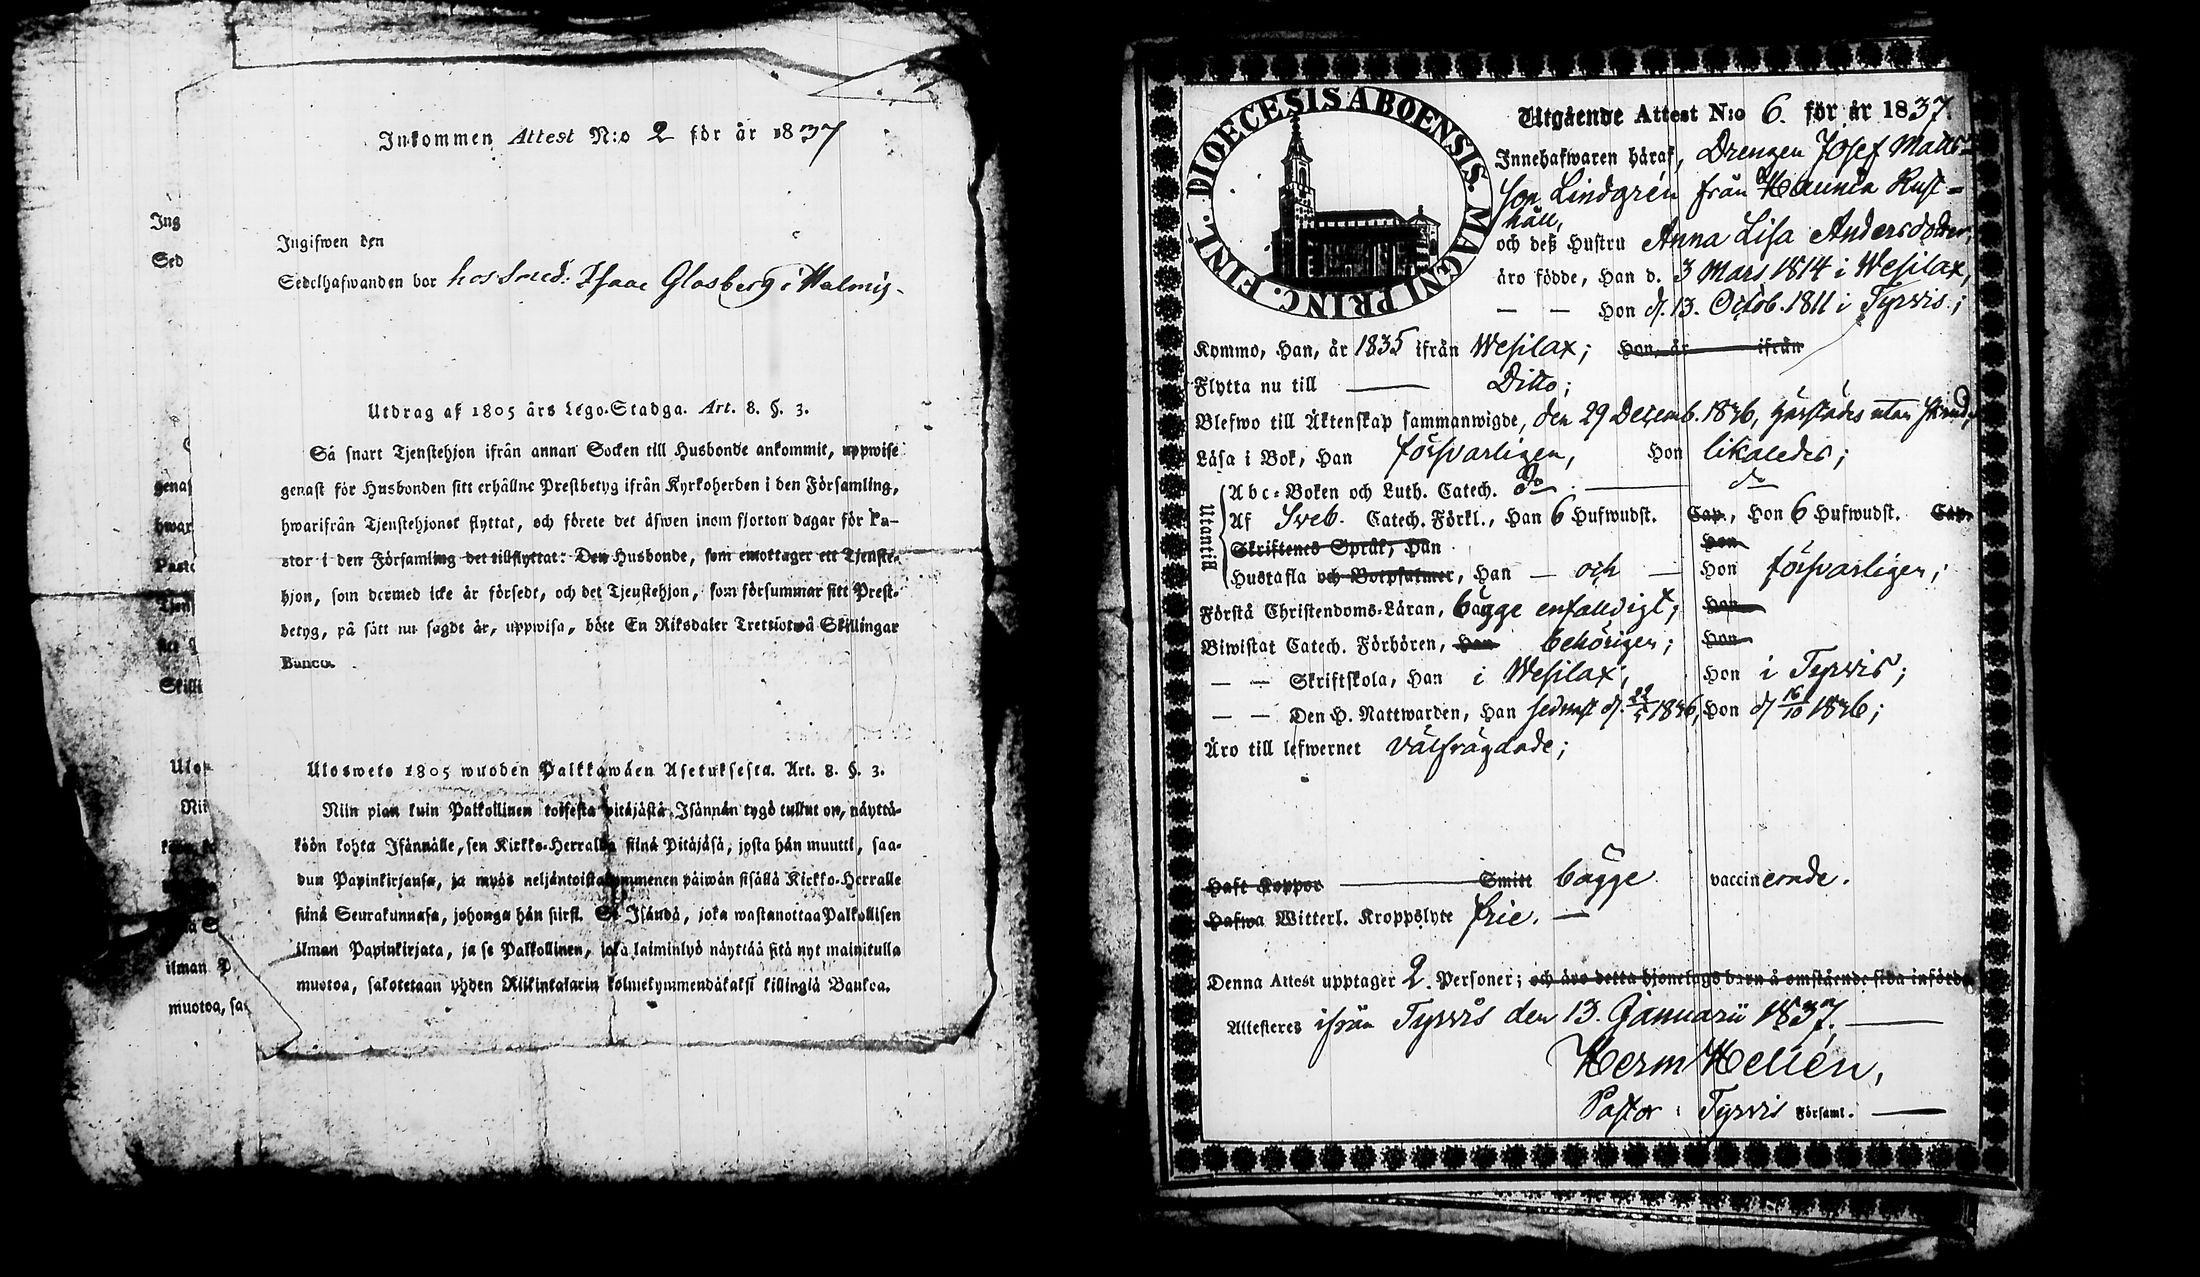 Inkommen Attest N:o 2 för år 1837
Ing
Sed
Ingifwen den
Sedelhafwanden bor hos Smed: Isaac Glasberg i Malmis.
Utdrag af 1805 års Lego-Stadga. Art. 8. §. 3.
Så snart Tjenstehjon ifrån annan Socken till Husbonde ankommit, uppwise
genast för Husbonden sitt erhållne Prestbetyg ifrån Kyrkoherden i den Församling,
hwarifrån Tjenstehjonet flyttat, och förete det äfwen inom fjorton dagar för Pa-
stor i den Församling det tillflyttat: Den Husbonde, som emottager ett Tjenste-
hjon, som dermed icke är försedt, och det Tjenstehjon, som försummar sitt Prest-
betyg, på sätt nu sagdt är, uppwisa, böte En Riksdaler Trettiotwå Skillingar
Banco.
genas
hwar
Pasto
Tjens
Skilli
Ulosweto 1805 wuoden Palkkawäen Asetuksesta. Art. 8. §. 3.
Niin pian kuin Palkollinen toisesta pitäjästä Isännän tygö tullut on, näyttä-
köön kohta Isännälle, sen Kirkko-Herralda siinä Pitäjäsä, josta hän muutti, saa-
dun Papinkirjansa, ja myös neljäntoistakymmenen päiwän sisällä Kirkko-Herralle
siinä Seurakunnasa, johonga hän siirst. Se Isändä, joka wastanottaa Palkollisen
ilman Papinkirjata, ja se Palkollinen, joka laiminlyö näyttää sitä nyt mainitulla
muotoa, sakotetaan yhden Riikintalarin kolmekymmendäkaksi killingiä Baukoa.
ilman P
muotoa, sa
DIOECESIS ABOENSIS. MAGNI PRINC. FINL.
Utgående Attest N:o 6. för år 1837.
Innehafwaren häraf, Drengen Josef Matts-
son Lindgrén från Haunia Rust-
håll,
och deß Hustru Anna Lisa Andersdotter,
äro födde, Han d. 3 Mars 1814 i Wesilax,
— — Hon d. 13. Octob. 1811 i Tyrvis;
Kommo, Han, år 1835 ifrån Wesilax; Hon, år ifrån
Flytta nu till — Ditto;
Blefwo till Äktenskap sammanwigde, den 29 Decemb. 1836, härstädes utan hind;
Läsa i Bok, Han försvarligen, Hon likaledes;
Utantill
Abc-Boken och Luth. Catech. do — do
Af Sveb. Catech. Förkl., Han 6 Hufwudst. Cap., Hon 6 Hufwudst. Cap.
Skriftenes Språk, Han Hon
Hustafla och Botpsalmer, Han — och — Hon försvarligen;
Förstå Christendoms-Läran, bägge enfaldigt; Hon
Biwistat Catech. Förhören, Han behörigen; Hon
— — Skriftskola, Han i Wesilax, Hon i Tyrvis;
— — Den H. Nattwarden, Han sednast d. 22/5 1836, Hon d 16/10 1836;
Äro till lefwernet välfrägdade;
Haft Koppor — Smitt bägge vaccinerade.
Hafwa Witterl. Kroppslyte frie. —
Denna Attest upptager 2. Personer; och äro detta hjonelags barn å omstående sida införde
Attesteres ifrån Tyrvis den 13. Januarii 1837. —
Herm Hellén,
Pastor i Tyrvis Församl. —